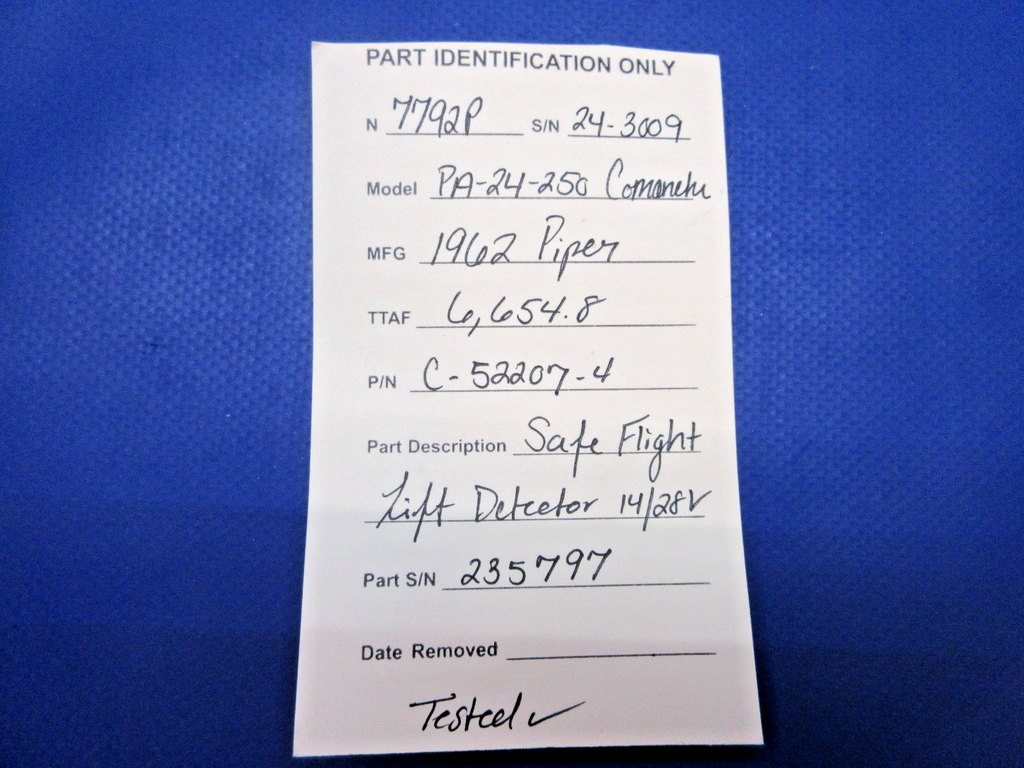 PART IDENTIFICATION ONLY
N 7792P S/N 24-3009
Model PA-24-250 Comanche
MFG 1962 Piper
TTAF 6,654.8
P/N C-52207-4
Part Description Safe Flight
Lift Detector 14/28V
Part S/N 235797
Date Removed
Tested ✓